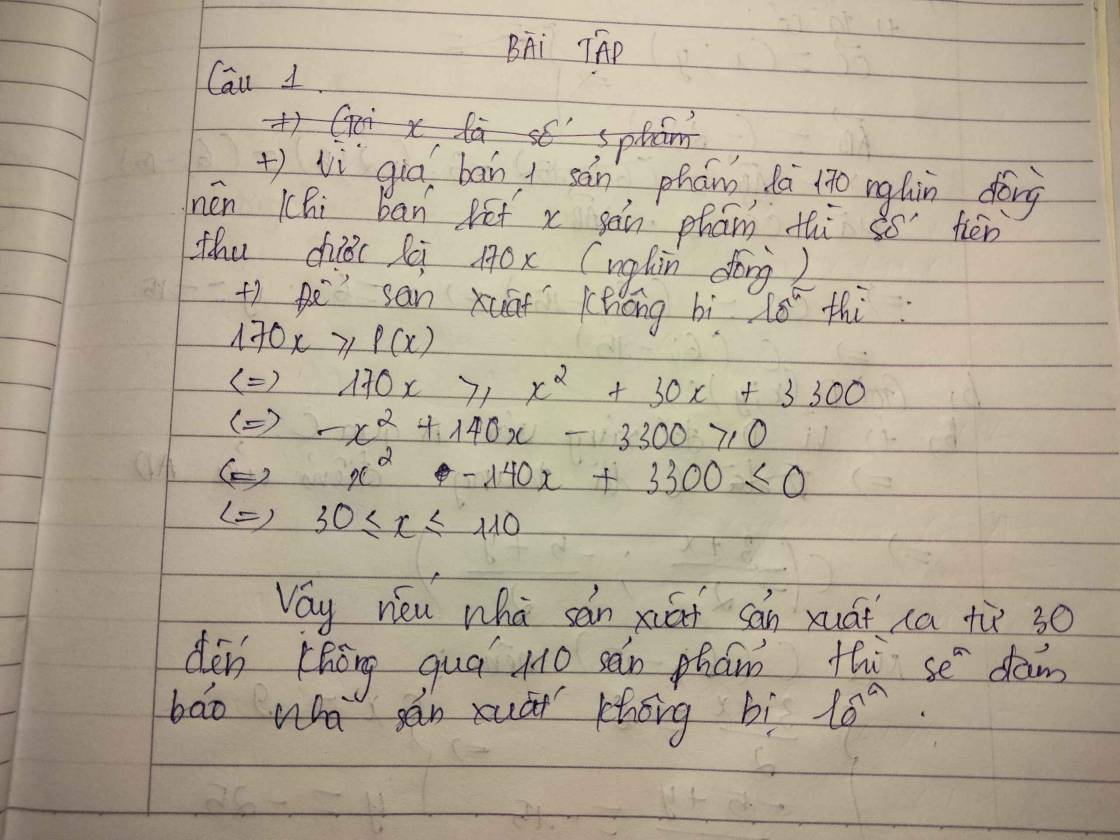 BÀI TẬP
Câu 1.
+) Gọi x là số sphẩm
+) Vì giá bán 1 sản phẩm là 170 nghìn đồng
nên khi bán hết x sản phẩm thì số tiền
thu được là 170x (nghìn đồng)
+) Để sản xuất không bị lỗ thì :
170x ⩾ P(x)
(=) 170x ⩾ x² + 30x + 3300
(=) -x² + 140x - 3300 ⩾ 0
(=) x² - 140x + 3300 ≤ 0
(=) 30 ≤ x ≤ 110
Vậy nếu nhà sản xuất sản xuất ra từ 30
đến không quá 110 sản phẩm thì sẽ đảm
bảo nhà sản xuất không bị lỗ.